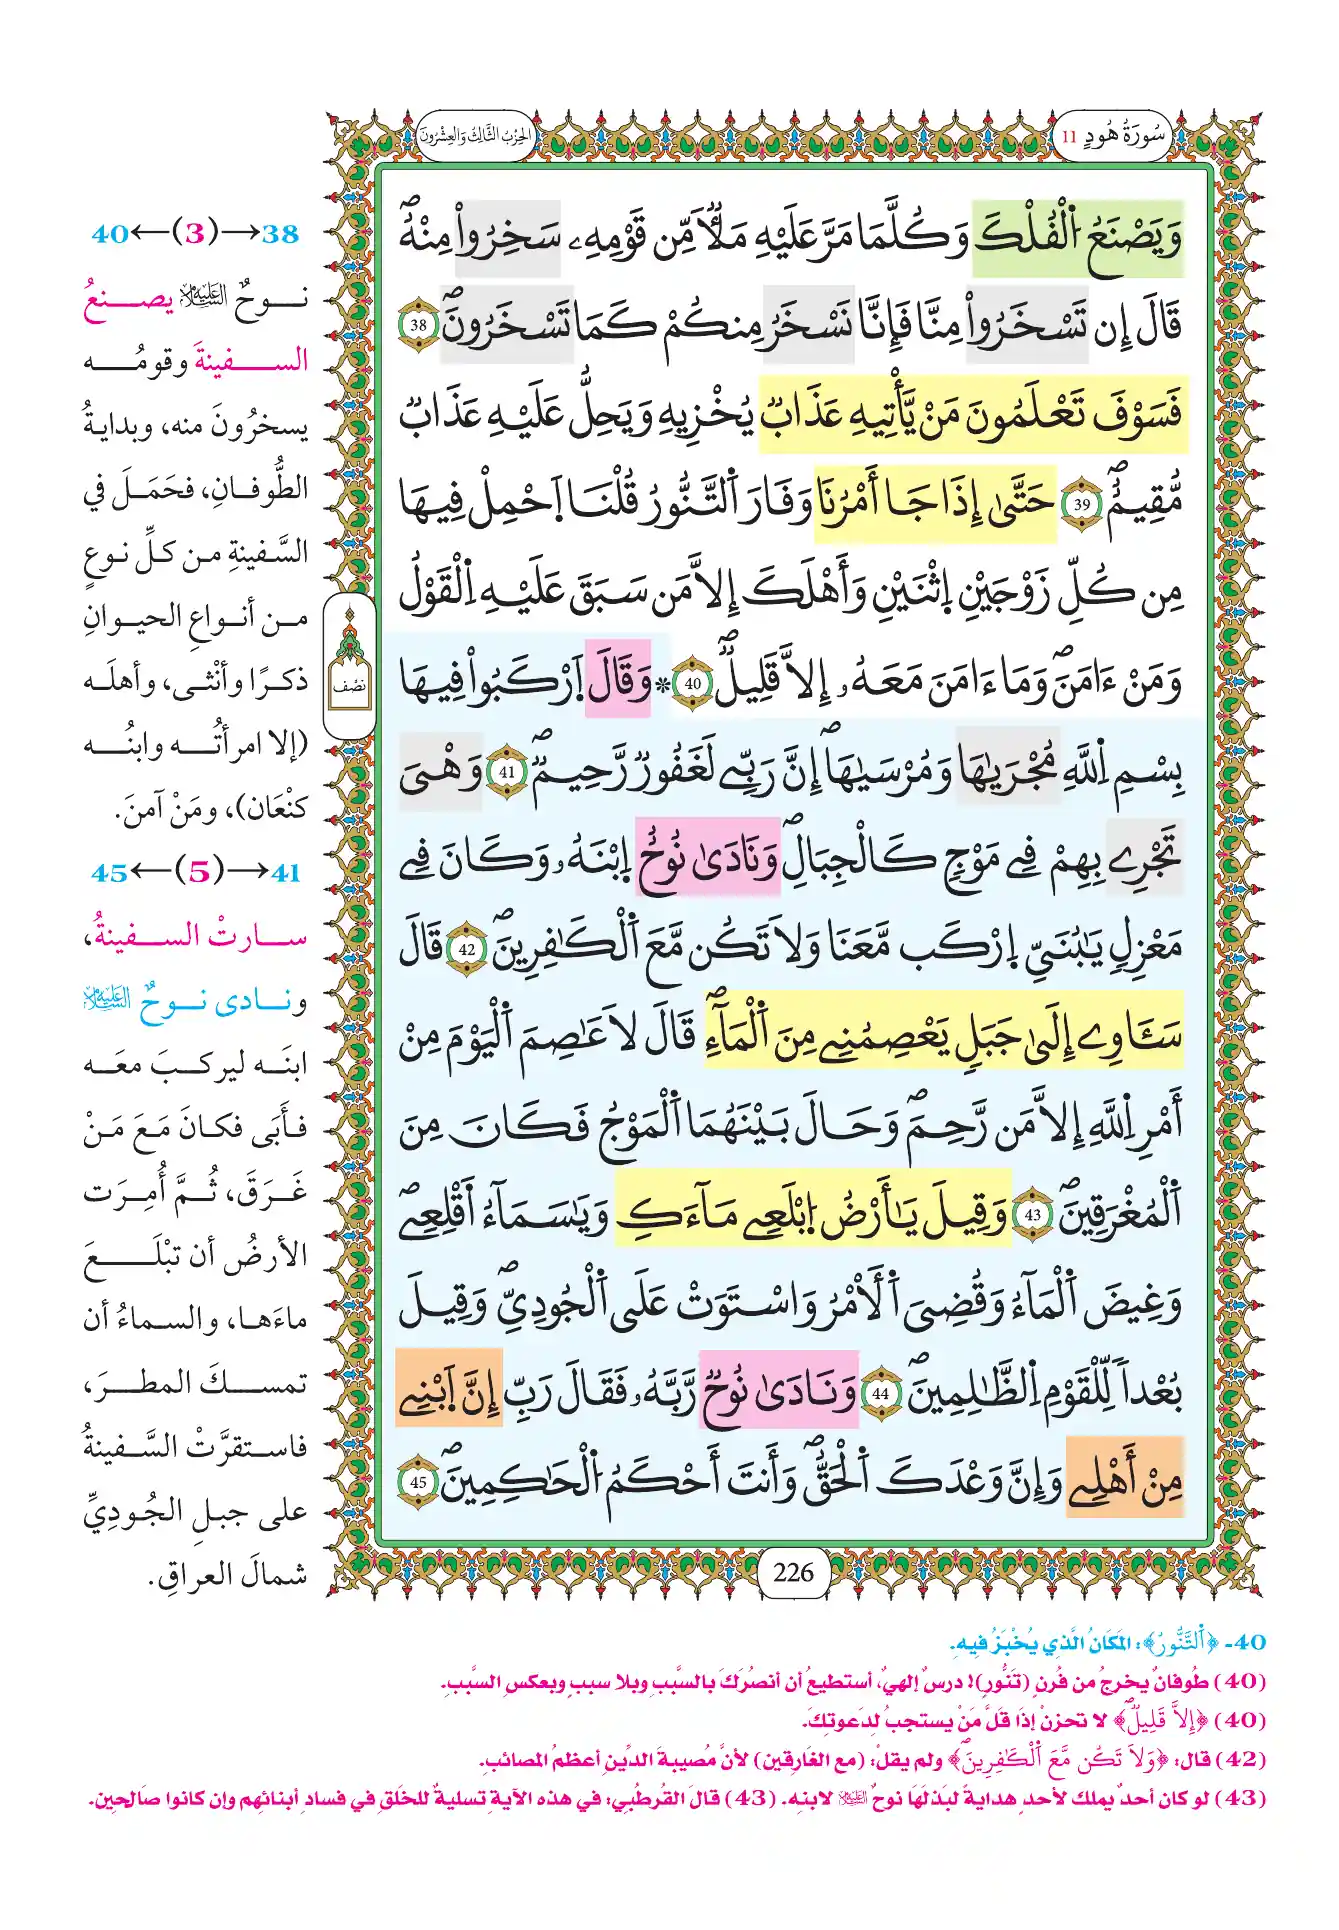 سُورَةُ هُودٍ 11
الحِزْبُ الثَّالِثُ وَالعِشْرُونَ
وَيَصْنَعُ اُ۬لْفُلْكَ وَكُلَّمَا مَرَّ عَلَيْهِ مَلَأٌ مِّن قَوْمِهِۦ سَخِرُواْ مِنْهُۖ
قَالَ إِن تَسْخَرُواْ مِنَّا فَإِنَّا نَسْخَرُ مِنكُمْ كَمَا تَسْخَرُونَۖ 38
فَسَوْفَ تَعْلَمُونَ مَنْ يَّأْتِيهِ عَذَابٌ يُخْزِيهِ وَيَحِلُّ عَلَيْهِ عَذَابٌ
مُّقِيمٌۖ 39 حَتَّىٰ إِذَا جَا أَمْرُنَا وَفَارَ اَ۬لتَّنُّورُ قُلْنَا اَ۪حْمِلْ فِيهَا
مِن كُلِّ زَوْجَيْنِ اِ۪ثْنَيْنِ وَأَهْلَكَ إِلاَّ مَن سَبَقَ عَلَيْهِ اِ۬لْقَوْلُ
وَمَنْ ءَامَنَۖ وَمَا ءَامَنَ مَعَهُۥ إِلاَّ قَلِيلٌۖ 40 * وَقَالَ اَ۪رْكَبُواْ فِيهَا
بِسْمِ اِ۬للَّهِ مُجْرَىٰهَا وَمُرْسَىٰهَاۖ إِنَّ رَبِّے لَغَفُورٌ رَّحِيمٌۖ 41 وَهْىَ
تَجْرِے بِهِمْ فِے مَوْجٍ كَالْجِبَالِۖ وَنَادَىٰ نُوحٌ اِ۪بْنَهُۥ وَكَانَ فِے
مَعْزِلٍ يَٰبُنَيِّ اِ۪رْكَب مَّعَنَا وَلاَ تَكُن مَّعَ اَ۬لْكَٰفِرِينَۖ 42 قَالَ
سَـَٔاوِے إِلَىٰ جَبَلٍ يَعْصِمُنِے مِنَ اَ۬لْمَآءِۖ قَالَ لاَ عَاصِمَ اَ۬لْيَوْمَ مِنْ
أَمْرِ اِ۬للَّهِ إِلاَّ مَن رَّحِمَۖ وَحَالَ بَيْنَهُمَا اَ۬لْمَوْجُ فَكَانَ مِنَ
اَ۬لْمُغْرَقِينَۖ 43 وَقِيلَ يَٰأَرْضُ اُ۪بْلَعِے مَآءَكِ وَيَٰسَمَآءُ اَ۬قْلِعِےۖ
وَغِيضَ اَ۬لْمَآءُ وَقُضِىَ اَ۬لْأَمْرُ وَاسْتَوَتْ عَلَى اَ۬لْجُودِيِّۖ وَقِيلَ
بُعْداً لِّلْقَوْمِ اِ۬لظَّٰلِمِينَۖ 44 وَنَادَىٰ نُوحٌ رَّبَّهُۥ فَقَالَ رَبِّ إِنَّ اَ۪بْنِے
مِنْ أَهْلِے وَإِنَّ وَعْدَكَ اَ۬لْحَقُّۖ وَأَنتَ أَحْكَمُ اُ۬لْحَٰكِمِينَۖ 45
نصْف
226
38→(3)←40
نوحٌ عَلَيْهِ السَّلَامُ يصنعُ
السفينةَ وقومُه
يسخرُونَ منه، وبدايةُ
الطُّوفانِ، فحَمَلَ في
السَّفينةِ من كلِّ نوعٍ
من أنواعِ الحيوانِ
ذكرًا وأنْثى، وأهلَه
(إلا امرأتُه وابنُه
كنْعَان)، ومَنْ آمنَ.
41→(5)←45
سارتْ السفينةُ،
ونادى نوحٌ عَلَيْهِ السَّلَامُ
ابنَه ليركبَ معَه
فأَبَى فكانَ مَعَ مَنْ
غَرَقَ، ثُمَّ أُمِرَت
الأرضُ أن تبْلَعَ
ماءَها، والسماءُ أن
تمسكَ المطرَ،
فاستقرَّتْ السَّفينةُ
على جبلِ الجُودِيِّ
شمالَ العراقِ.
40- ﴿اَ۬لتَّنُّورُ﴾: المَكَانُ الَّذِي يُخْبَزُ فيِهِ.
(40) طُوفانٌ يخرجُ من فُرنٍ (تَنُّورٍ)! درسٌ إلهيٌ، أستطيعُ أن أنصُرَكَ بالسَّببِ وبلا سببٍ وبعكسِ السَّببِ.
(40) ﴿إِلاَّ قَلِيلٌۖ﴾ لا تحزنْ إذَا قَلَّ مَنْ يستجبُ لِدَعوتِكَ.
(42) قال: ﴿وَلاَ تَكُن مَّعَ اَ۬لْكَٰفِرِينَۖ﴾ ولم يقلْ: (مع الغَارِقين) لأنَّ مُصيبةَ الدِّينِ أعظمُ المصائبِ.
(43) لو كان أحدٌ يملك لأحدٍ هدايةً لبَذلَهَا نوحٌ عَلَيْهِ السَّلَامُ لابنِه. (43) قالَ القُرطُبي: في هذه الآيةِ تسليةٌ للخَلقِ في فسادِ أبنائهِم وإن كانوا صَالحِين.